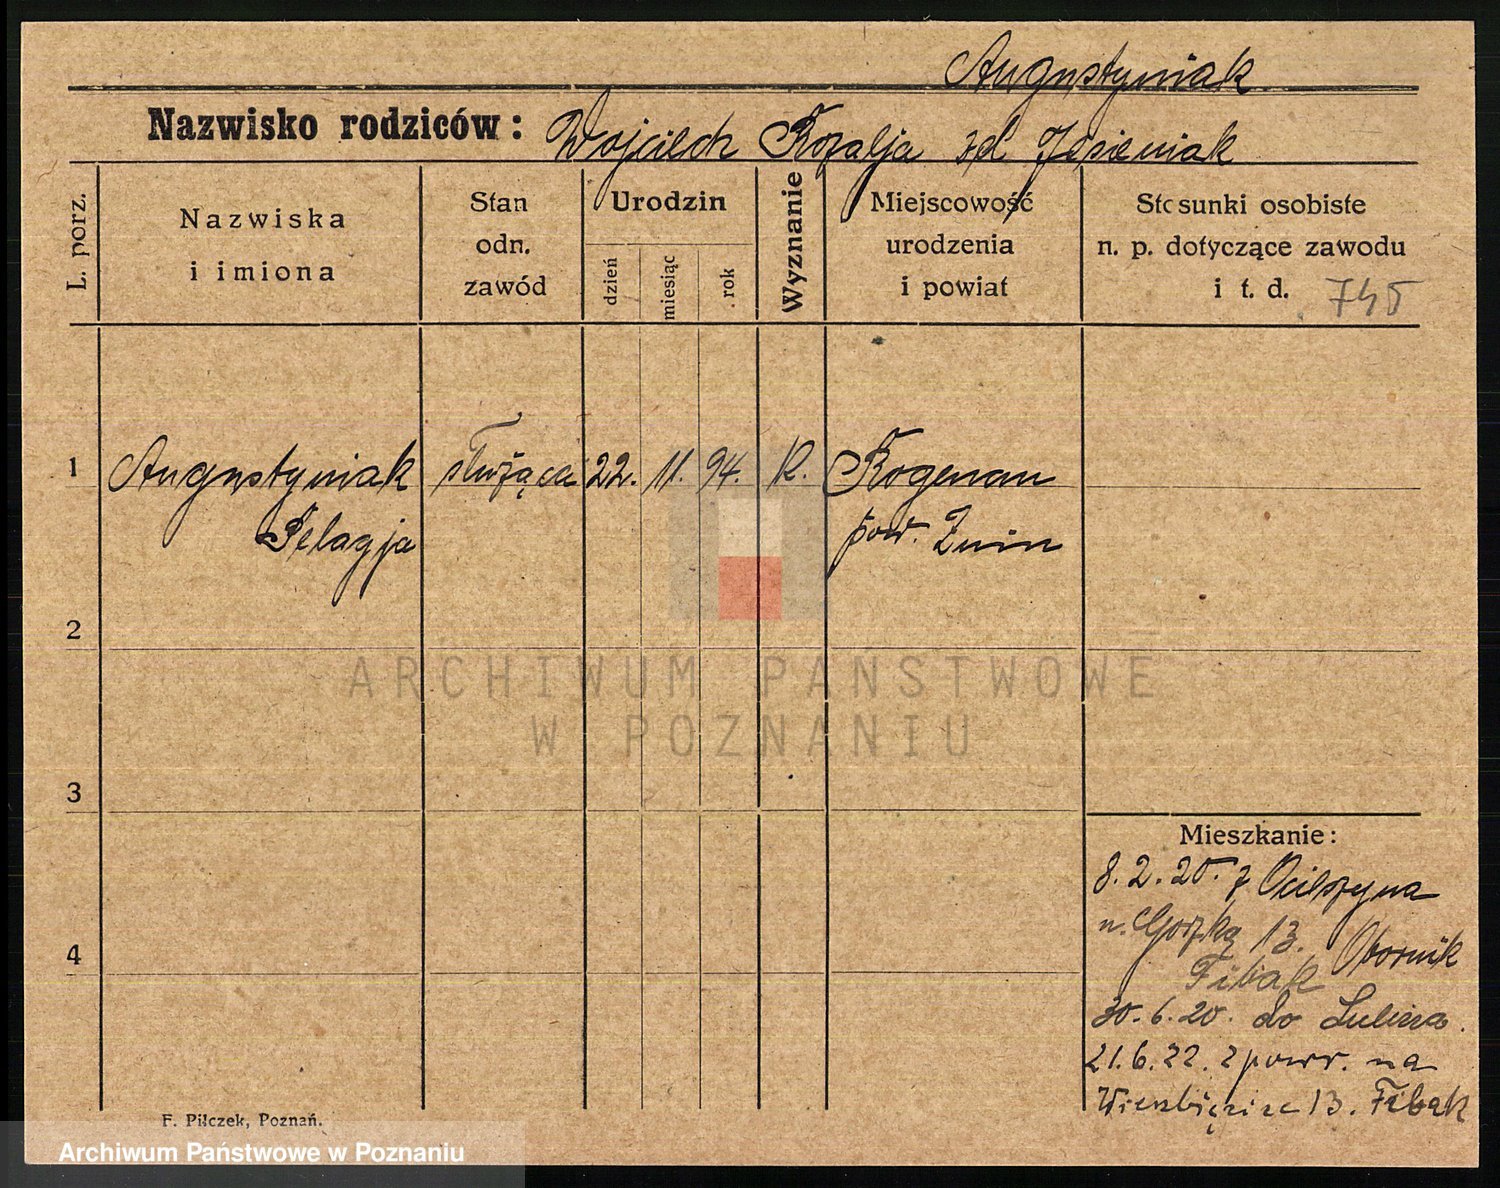 Augustyniak
Nazwisko rodziców: Wojciech Rozalja zd Jesieniak
L. porz.
Nazwiska i imiona
Stan odn. zawód
Urodzin
dzień
miesiąc
rok
Wyznanie
Miejscowość urodzenia i powiat
Stosunki osobiste
n. p. dotyczące zawodu
i t. d. 745
1 Augustyniak służąca 22. 11. 94. K. Rogenau
Pelagja pow. Żnin
2
ARCHIWUM PAŃSTWOWE
W POZNANIU
3
Mieszkanie:
8.2.20. z Ocieszyna
n. 13. Obornik
4
Fibak
30.6.20. do
21.6.22. z powr. na
Wierzbięcice 13. Fibak
F. Piłczek, Poznań.
Archiwum Państwowe w Poznaniu